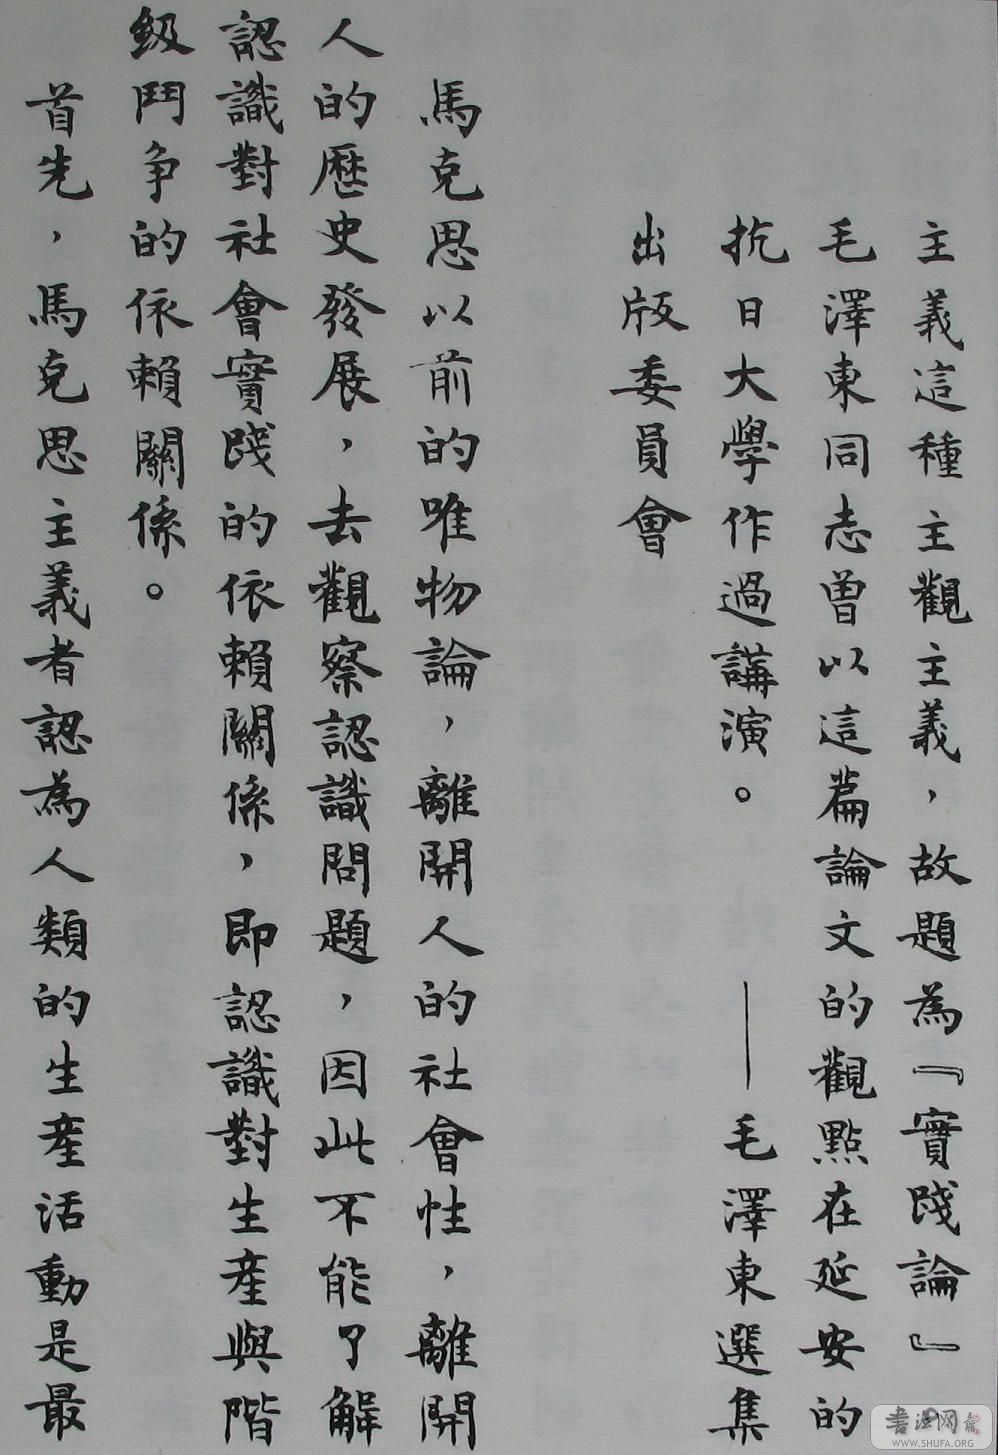 主義這種主觀主義，故題為『實踐論』。
毛澤東同志曾以這篇論文的觀點在延安的
抗日大學作過講演。 ——毛澤東選集
出版委員會
馬克思以前的唯物論，離開人的社會性，離開
人的歷史發展，去觀察認識問題，因此不能了解
認識對社會實踐的依賴關係，即認識對生產與階
級鬥爭的依賴關係。
首先，馬克思主義者認為人類的生產活動是最
書法网
WWW.SHUFA.ORG